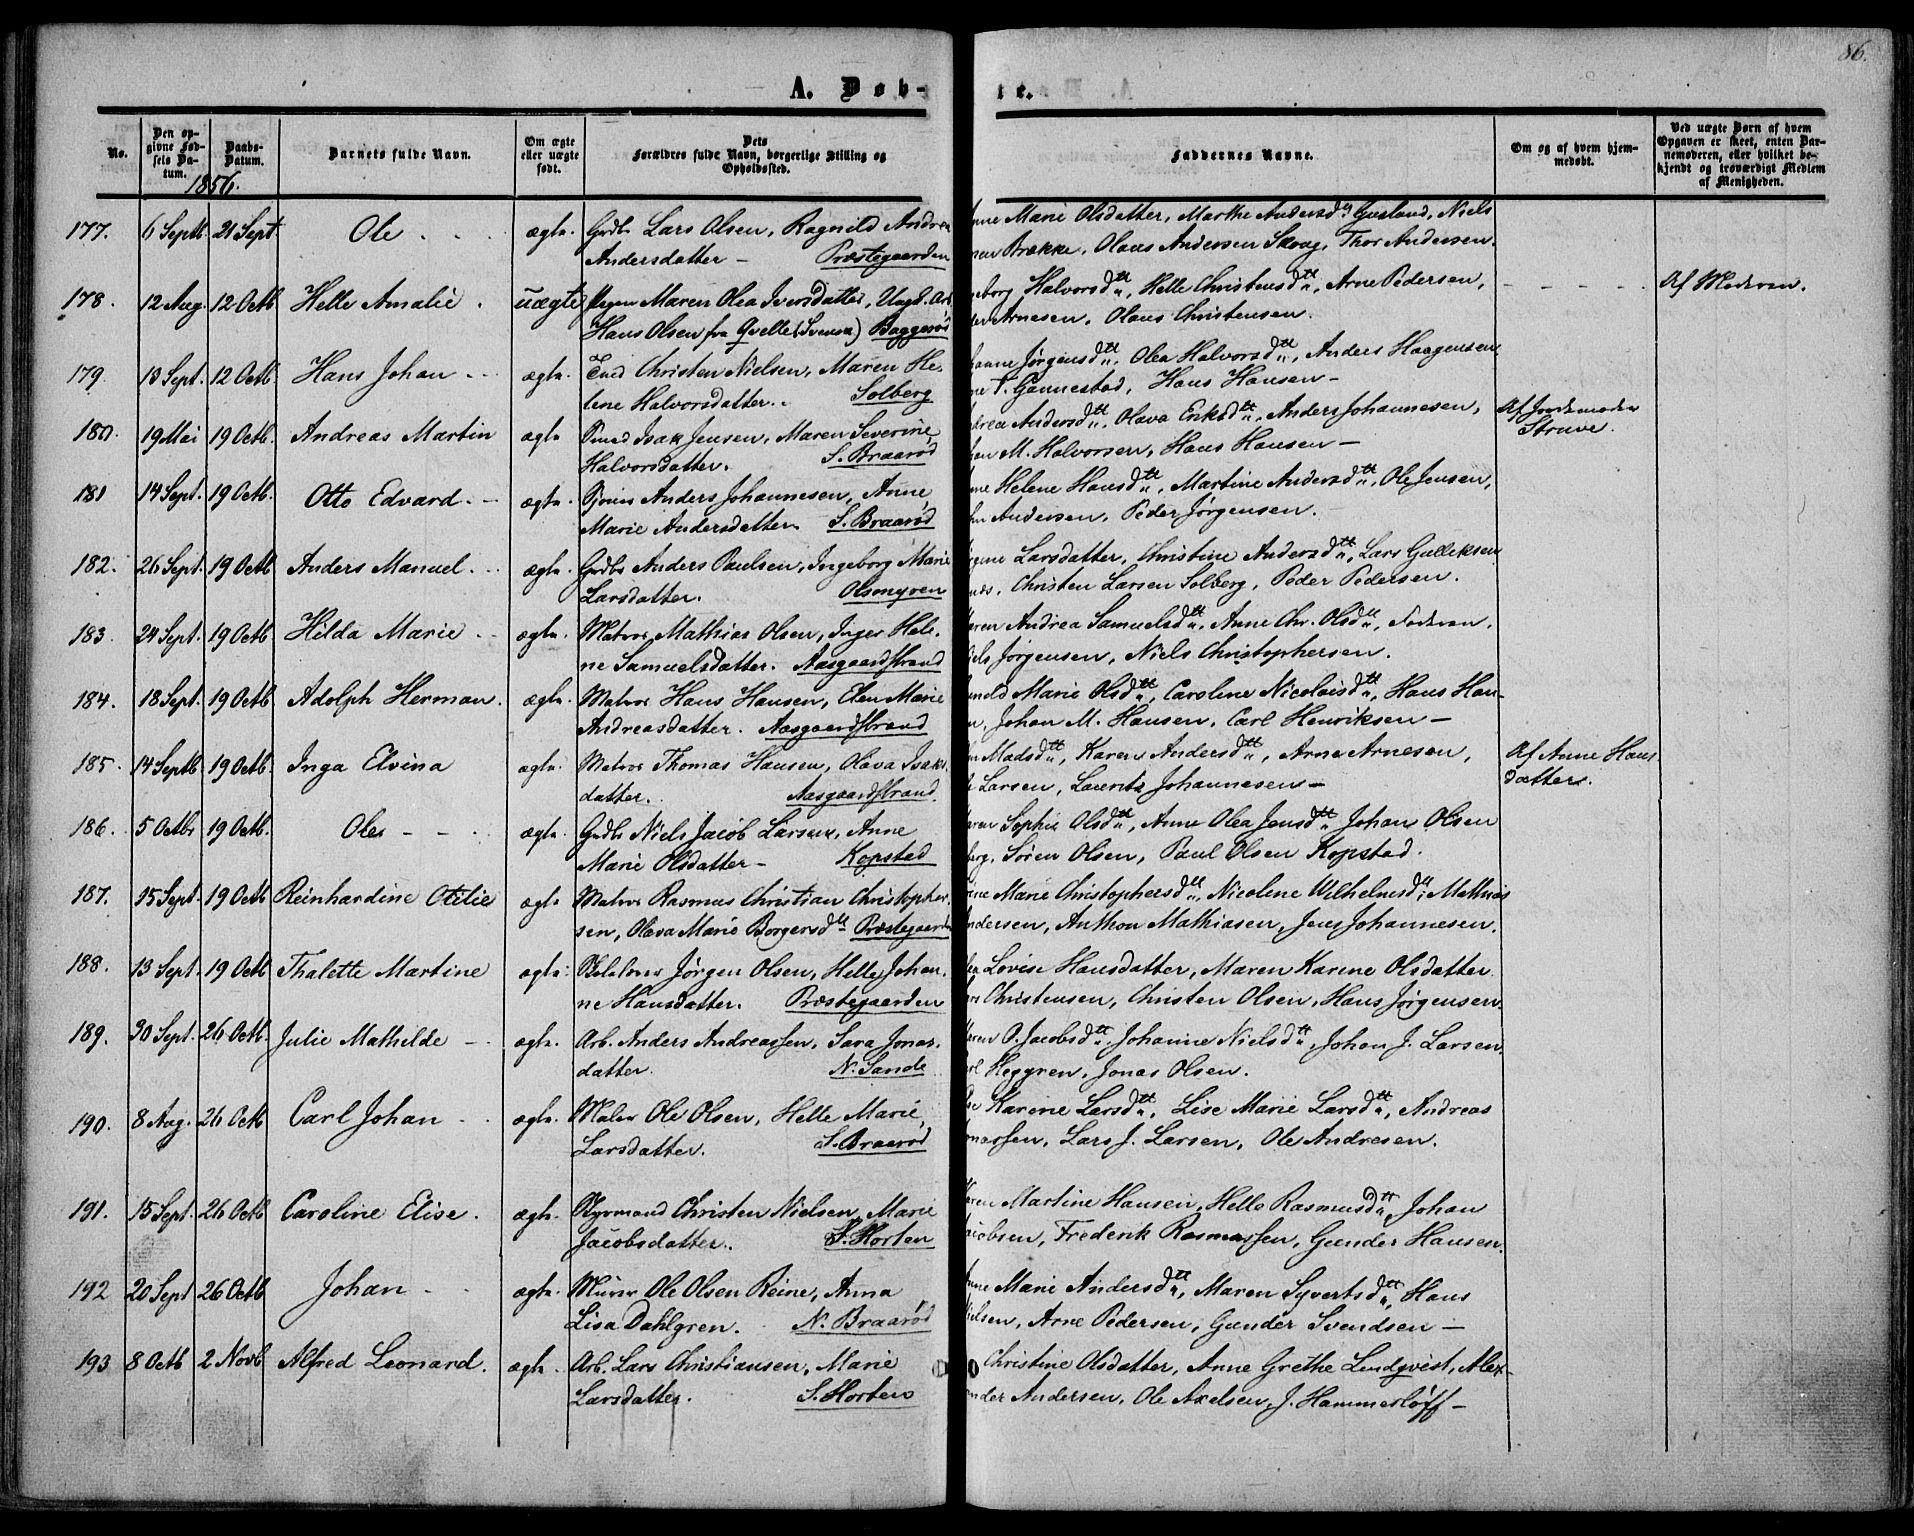 86.
A. Døb-
te.
No.
Den op-
givne Fød-
sels Da-
tum.
Daabs-
Datum.
Barnets fulde Navn.
Om ægte
eller uægte
født.
Dets
Forældres fulde Navn, borgerlige Stilling og
Opholdssted.
Faddernes Navne.
Om og af hvem hjem-
medøbt.
Ved uægte Børn af hvem
Opgaven er skeet, enten Bar-
nemoderen, eller hvilket be-
kjendt og troværdigt Medlem
af Menigheden.
1856.
177. 6 Septb. 21 Sept Ole ægte. Grdbr Lars Olsen, Ragnild Andrea
Andersdatter – Præstegaarden
Marie Olsdatter, Marthe Andersd., Niels
Brække, Olaus Andersen Skoug, Thor Andersen.
178. 12 Aug. 12 Octb Helle Amalie. uægte Pigen Maren Olea Iversdatter, Ungk. Arb.
Hans Olsen fra Qvelle (Svensk) Baggerød
Halvorsdtt., Helle Christensdtt., Arne Pedersen,
Arnesen, Olaus Christensen.
Af Moderen.
179. 13 Sept. 12 Octb Hans Johan ægte. Christen Nielsen, Maren He-
lene Halvorsdatter. Solberg
Jørgensdtt., Olea Halvorsdtt., Anders Haagensen
T. Gannestad, Hans Hansen –
180. 19 Mai 19 Octb. Andreas Martin ægte Isak Jensen, Maren Severine
Halvorsdatter. S. Braarød
Andersdtt., Olava Eriksdtt., Anders Johannesen,
M. Halvorsen, Hans Hansen –
Af Jordemoder
Struve.
181 14 Sept. 19 Octb. Otto Edvard. ægte. Anders Johannesen, Anne
Marie Andersdatter. S. Braarød
Helene Hansdtt., Martine Andersdtt., Ole Jensen,
Andersen, Peder Jørgensen.
182. 26 Sept. 19 Octb Anders Manuel. ægte. Grdbr Anders Paulsen, Ingeborg Marie
Larsdatter. Olsmyren
Larsdatter, Christine Andersdtt., Lars Gulleksen
Christen Larsen Solberg, Peder Pedersen.
183. 24 Sept. 19 Octb Hilda Marie ægte. Matros Mathias Olsen, Inger Hele-
ne Samuelsdatter. Aasgaardstrand
Andrea Samuelsdtt., Anne Chr. Olsdtt., Faderen,
Jørgensen, Niels Christophersen.
184. 18 Sept. 19 Octb Adolph Herman. ægte. Matros Hans Hansen, Elen Marie
Andreasdatter. Aasgaardstrand
Marie Olsdtt., Caroline Nicolaisdtt., Hans Han-
Johan M. Hansen, Carl Henriksen –
185. 14 Septb 19 Octb. Inga Elvina ægte. Matros Thomas Hansen, Olava Isaks
datter. Aasgaardstrand.
Madsdtt., Karen Andersdtt., Arne Arnesen,
Larsen, Lauritz Johannesen –
Af Anne Hans
datter.
186. 5 Octbr 19 Octb. Ole ægte. Grdbr Niels Jacob Larsen, Anne
Marie Olsdatter – Kopstad
Sophie Olsdtt., Anne Olea Jensdtt. Johan Olsen
Søren Olsen, Paul Olsen Kopstad.
187. 15 Sept. 19 Octb Reinhardine Otilie ægte Matros Rasmus Christian Christopher-
sen, Olava Marie Borgersdtt. Præstegaarden
Marie Christophersdtt., Nicoline Wilhelmsdtt., Mathias
Andersen, Anthon Mathiasen, Jens Johannesen.
188. 13 Sept. 19 Octb Thalette Martine ægte. Jørgen Olsen, Helle Johan-
ne Hansdatter. Præstegaarden
Lovise Hansdatter, Maren Karine Olsdatter.
Christensen, Christen Olsen, Hans Jørgensen.
189. 30 Sept. 26 Octb. Julie Mathilde – ægte. Arb. Anders Andreassen, Sara Jonas-
datter. N. Sande
O. Jacobsdtt., Johanne Nielsdtt., Johan J. Larsen,
Heggren, Jonas Olsen.
190. 8 Aug. 26 Octb Carl Johan ægte. Maler Ole Olsen, Helle Marie
Larsdatter. S. Braarød
Karine Larsdtt., Lise Marie Larsdtt., Andreas
Lars J. Larsen, Ole Andresen.
191. 15 Sept. 26 Octb Caroline Elise. ægte. Styrmand Christen Nielsen, Marie
Jacobsdatter. S. Horten
Martine Hansen, Helle Rasmusdtt., Johan
Jacobsen, Frederik Rasmussen, Gunder Hansen.
192 20 Sept 26 Octb Johan ægte. Murer Ole Olsen Reine, Anna
Lisa Dahlgren. N. Braarød
Marie Andersdtt., Maren Syvertsdtt., Hans
Nielsen, Arne Pedersen, Gunder Svendsen –
193 8 Octb 2 Novb Alfred Leonard. ægte. Arb. Lars Christiansen, Marie
Larsdatter. S. Horten
Christine Olsdatter, Anne Grethe Lindqvist, Alex-
ander Andersen, Ole Axelsen, J. Hammerløff –